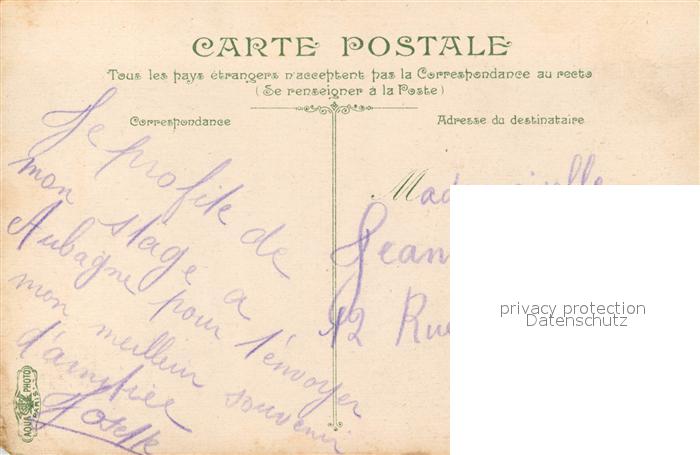 CARTE POSTALE
Tous les pays étrangers n'acceptent pas la Correspondance au recto
(Se renseigner à la Poste)
Correspondance
Adresse du destinataire
Je profite de
mon stage a
Aubagne pour t'envoyer
mon meilleur souvenir
d'amitiée
Mademoiselle
Jean
12 Rue
privacy protection
Datenschutz
AQUA PHOTO
PARIS